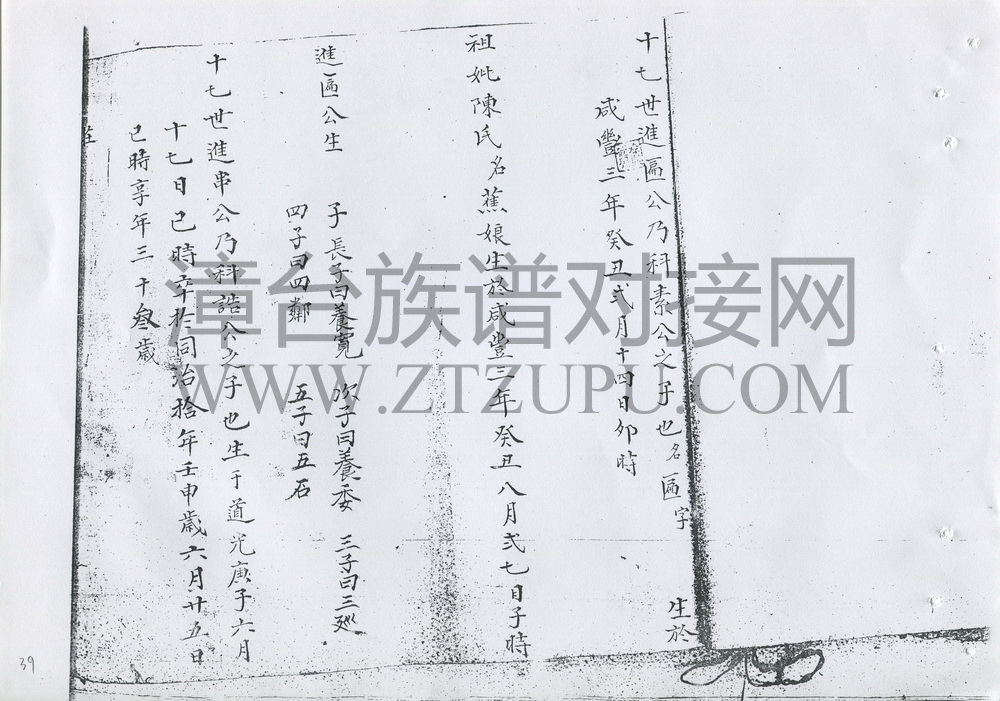 十七世進匾公乃科素公之子也名匾字 生於
咸豐三年癸丑弍月十四日卯時
祖妣陳氏名蕉娘生於咸豐三年癸丑八月弍七日子時
進匾公生 子長子曰養寬 次子曰養委 三子曰三廵
四子曰四鄰 五子曰五石
十七世進串公乃科誥公之子也生于道光庚子六月
十七日巳時卒於同治拾年壬申歲六月廿五日
巳時享年三十叄歲
漳台族谱对接网
WWW.ZTZUPU.COM
39